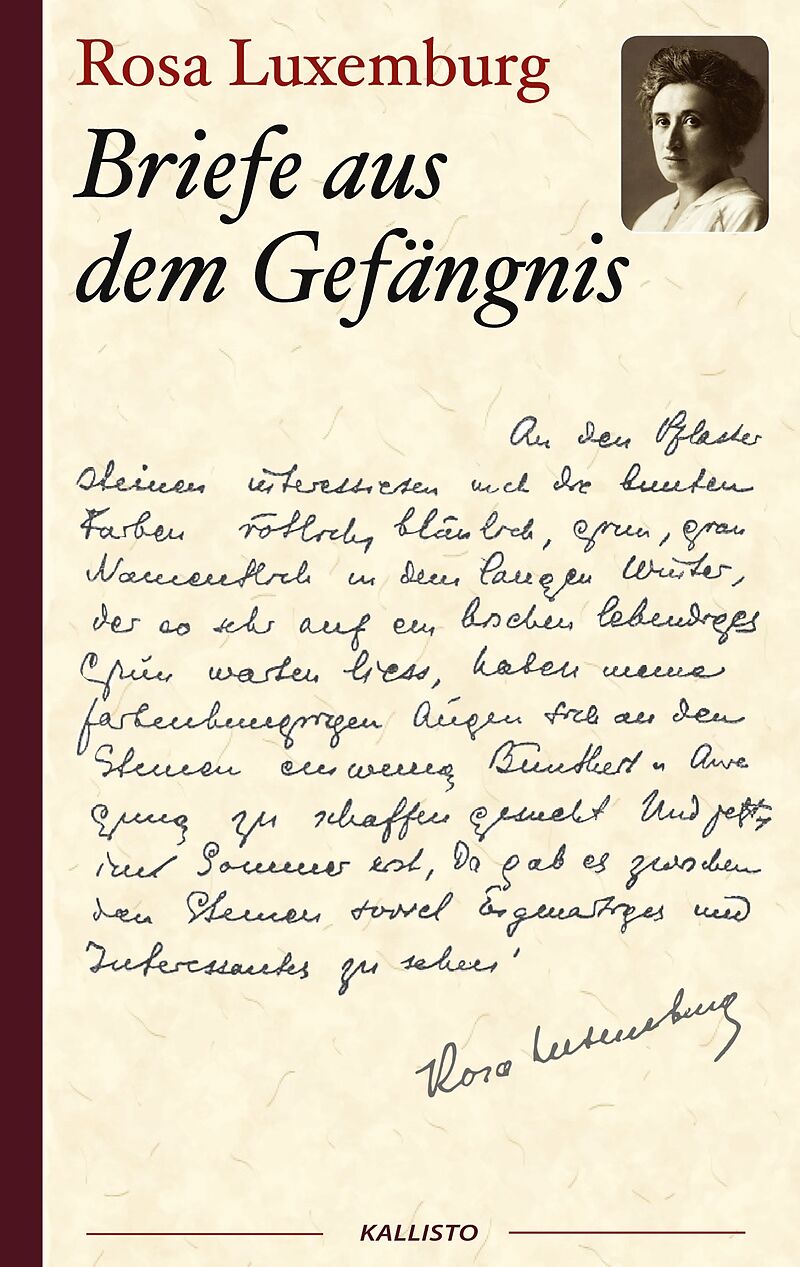 Rosa Luxemburg
Briefe aus
dem Gefängnis
An den Pflaster
steinen interessieren mich die bunten
Farben rötlich, bläulich, grün, grau
Namentlich in dem langen Winter,
der so sehr auf ein bischen lebendiges
Grün warten liess, haben meine
farbenhungrigen Augen sich an den
Steinen ein wenig Buntheit u Anre
gung zu schaffen gesucht Und jetzt
im Sommer erst, Da gab es zwischen
den Steinen soviel Eigenartiges und
Interessantes zu sehen!
Rosa Luxemburg
KALLISTO